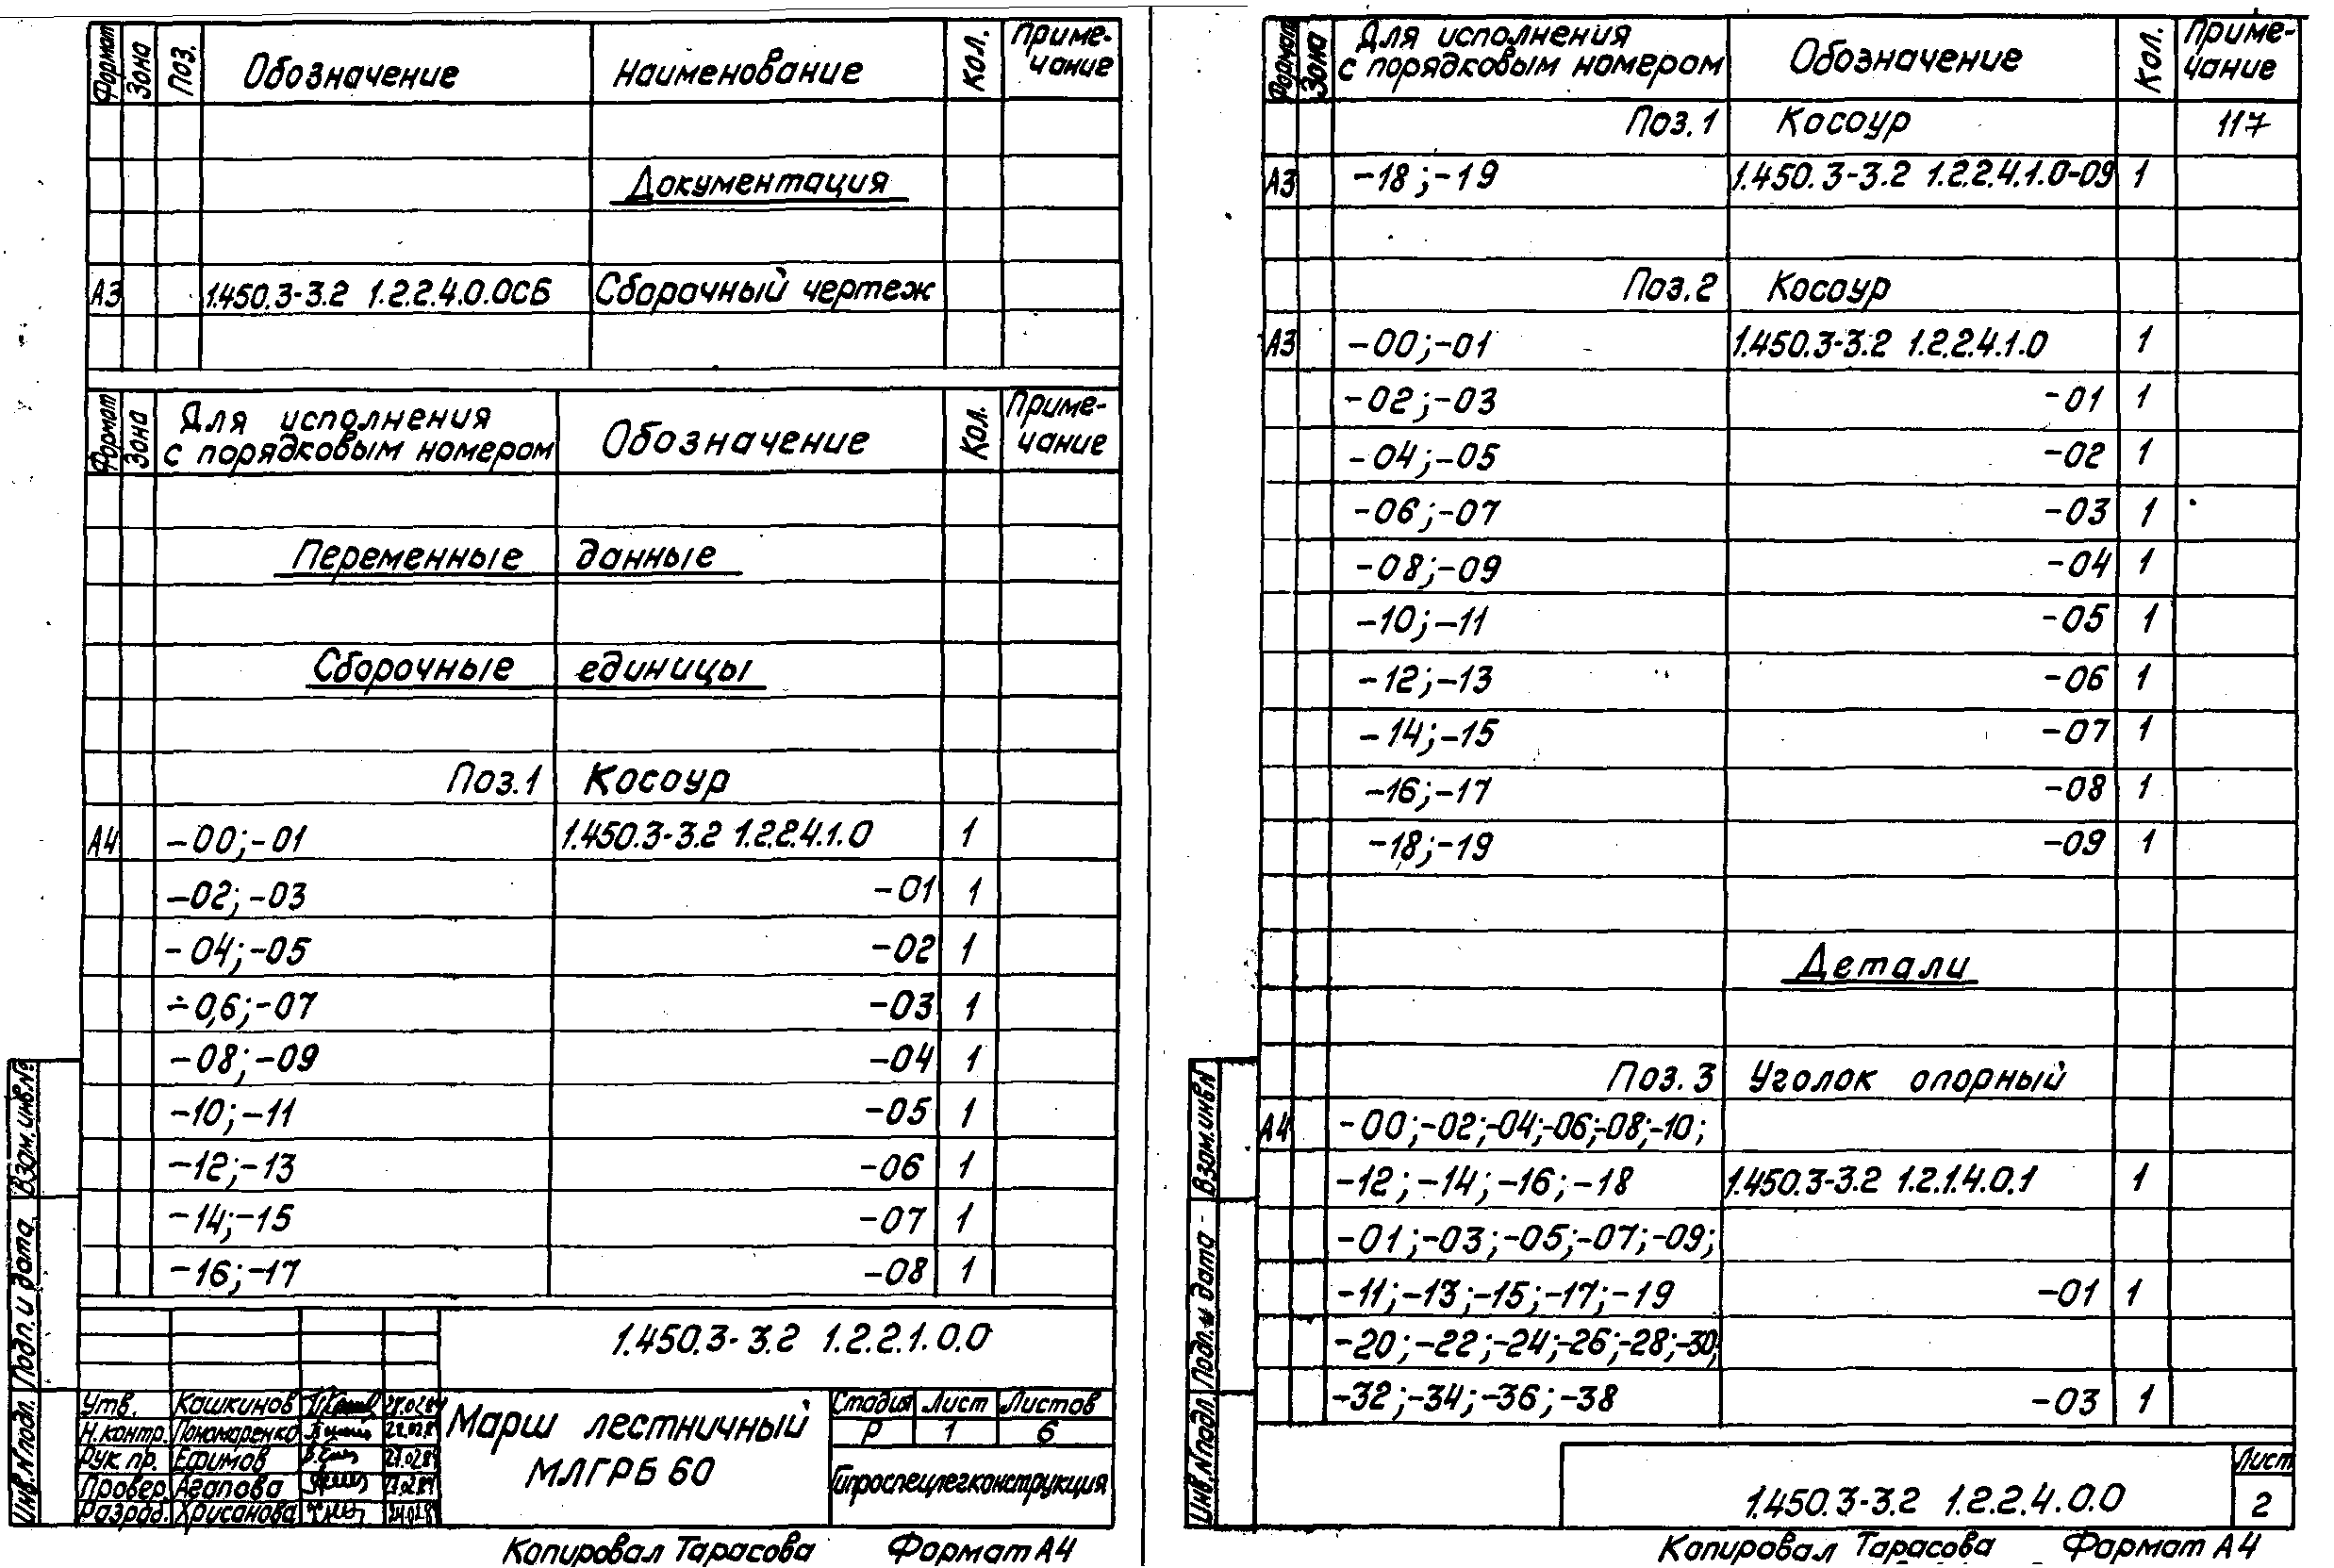 Формат Зона Поз. Обозначение Наименование Кол. Приме-
чание
Документация
А3 1.450.3-3.2 1.2.2.4.0.0СБ Сборочный чертеж
Формат Зона Для исполнения Обозначение Кол. Приме-
с порядковым номером чание
Переменные данные
Сборочные единицы
Поз.1 Косоур
А4 -00;-01 1.450.3-3.2 1.2.2.4.1.0 1
-02;-03 -01 1
-04;-05 -02 1
-06;-07 -03 1
-08;-09 -04 1
-10;-11 -05 1
-12;-13 -06 1
-14;-15 -07 1
-16;-17 -08 1
1.450.3-3.2 1.2.2.1.0.0
Утв. Кашкинов
Н.контр. Пономаренко
Рук.пр. Ефимов
Провер. Агапова
Разраб. Хрисанова
Марш лестничный
МЛГРБ 60
Стадия Лист Листов
Р 1 6
Гипроспецлегконструкция
Инв.N подл. Подп. и дата Взам.инв.N
Копировал Тарасова Формат А4
Формат Зона Для исполнения Обозначение Кол. Приме-
с порядковым номером чание
Поз.1 Косоур 117
А3 -18;-19 1.450.3-3.2 1.2.2.4.1.0-09 1
Поз.2 Косоур
А3 -00;-01 1.450.3-3.2 1.2.2.4.1.0 1
-02;-03 -01 1
-04;-05 -02 1
-06;-07 -03 1
-08;-09 -04 1
-10;-11 -05 1
-12;-13 -06 1
-14;-15 -07 1
-16;-17 -08 1
-18;-19 -09 1
Детали
Поз.3 Уголок опорный
А4 -00;-02;-04;-06;-08;-10;
-12;-14;-16;-18 1.450.3-3.2 1.2.1.4.0.1 1
-01;-03;-05;-07;-09;
-11;-13;-15;-17;-19 -01 1
-20;-22;-24;-26;-28;-30;
-32;-34;-36;-38 -03 1
Инв.N подл. Подп. и дата Взам.инв.N
1.450.3-3.2 1.2.2.4.0.0
Лист
2
Копировал Тарасова Формат А4